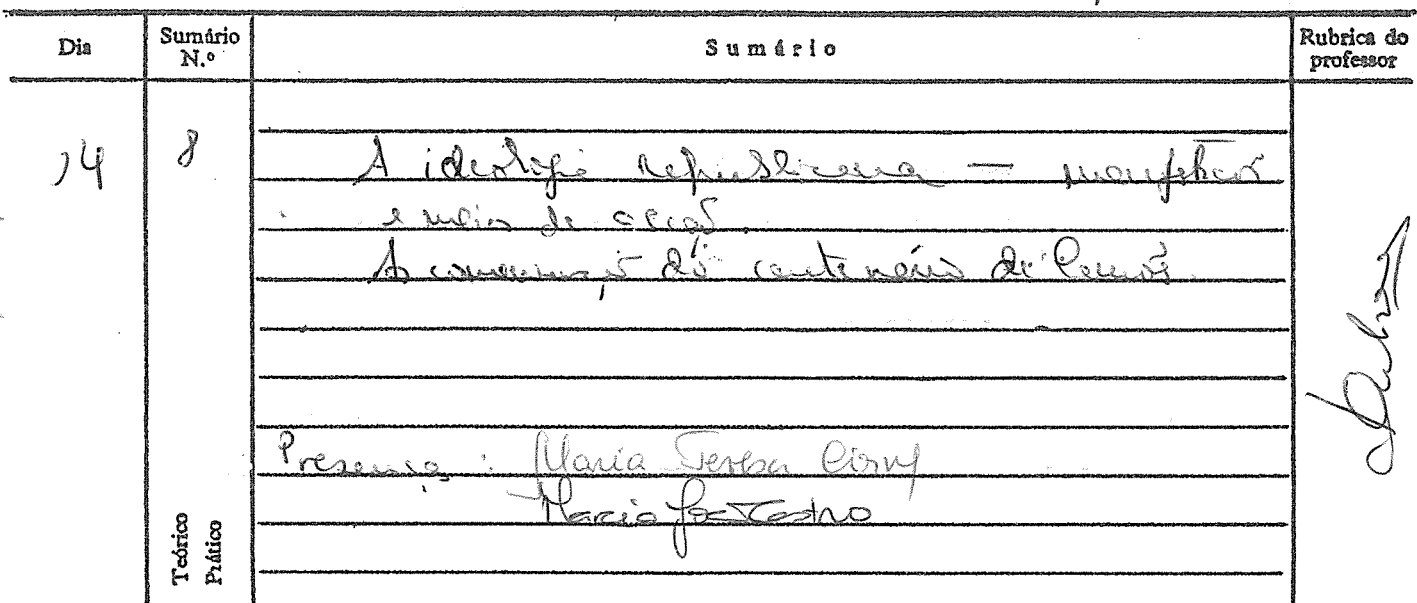 Dia
Sumário N.º
Sumário
Rubrica do professor
14
8
A ideologia republicana —
e meios de acção.
A comemoração do centenário de Camões
Presença: Maria Teresa
Maria José Castro
Teórico
Prático